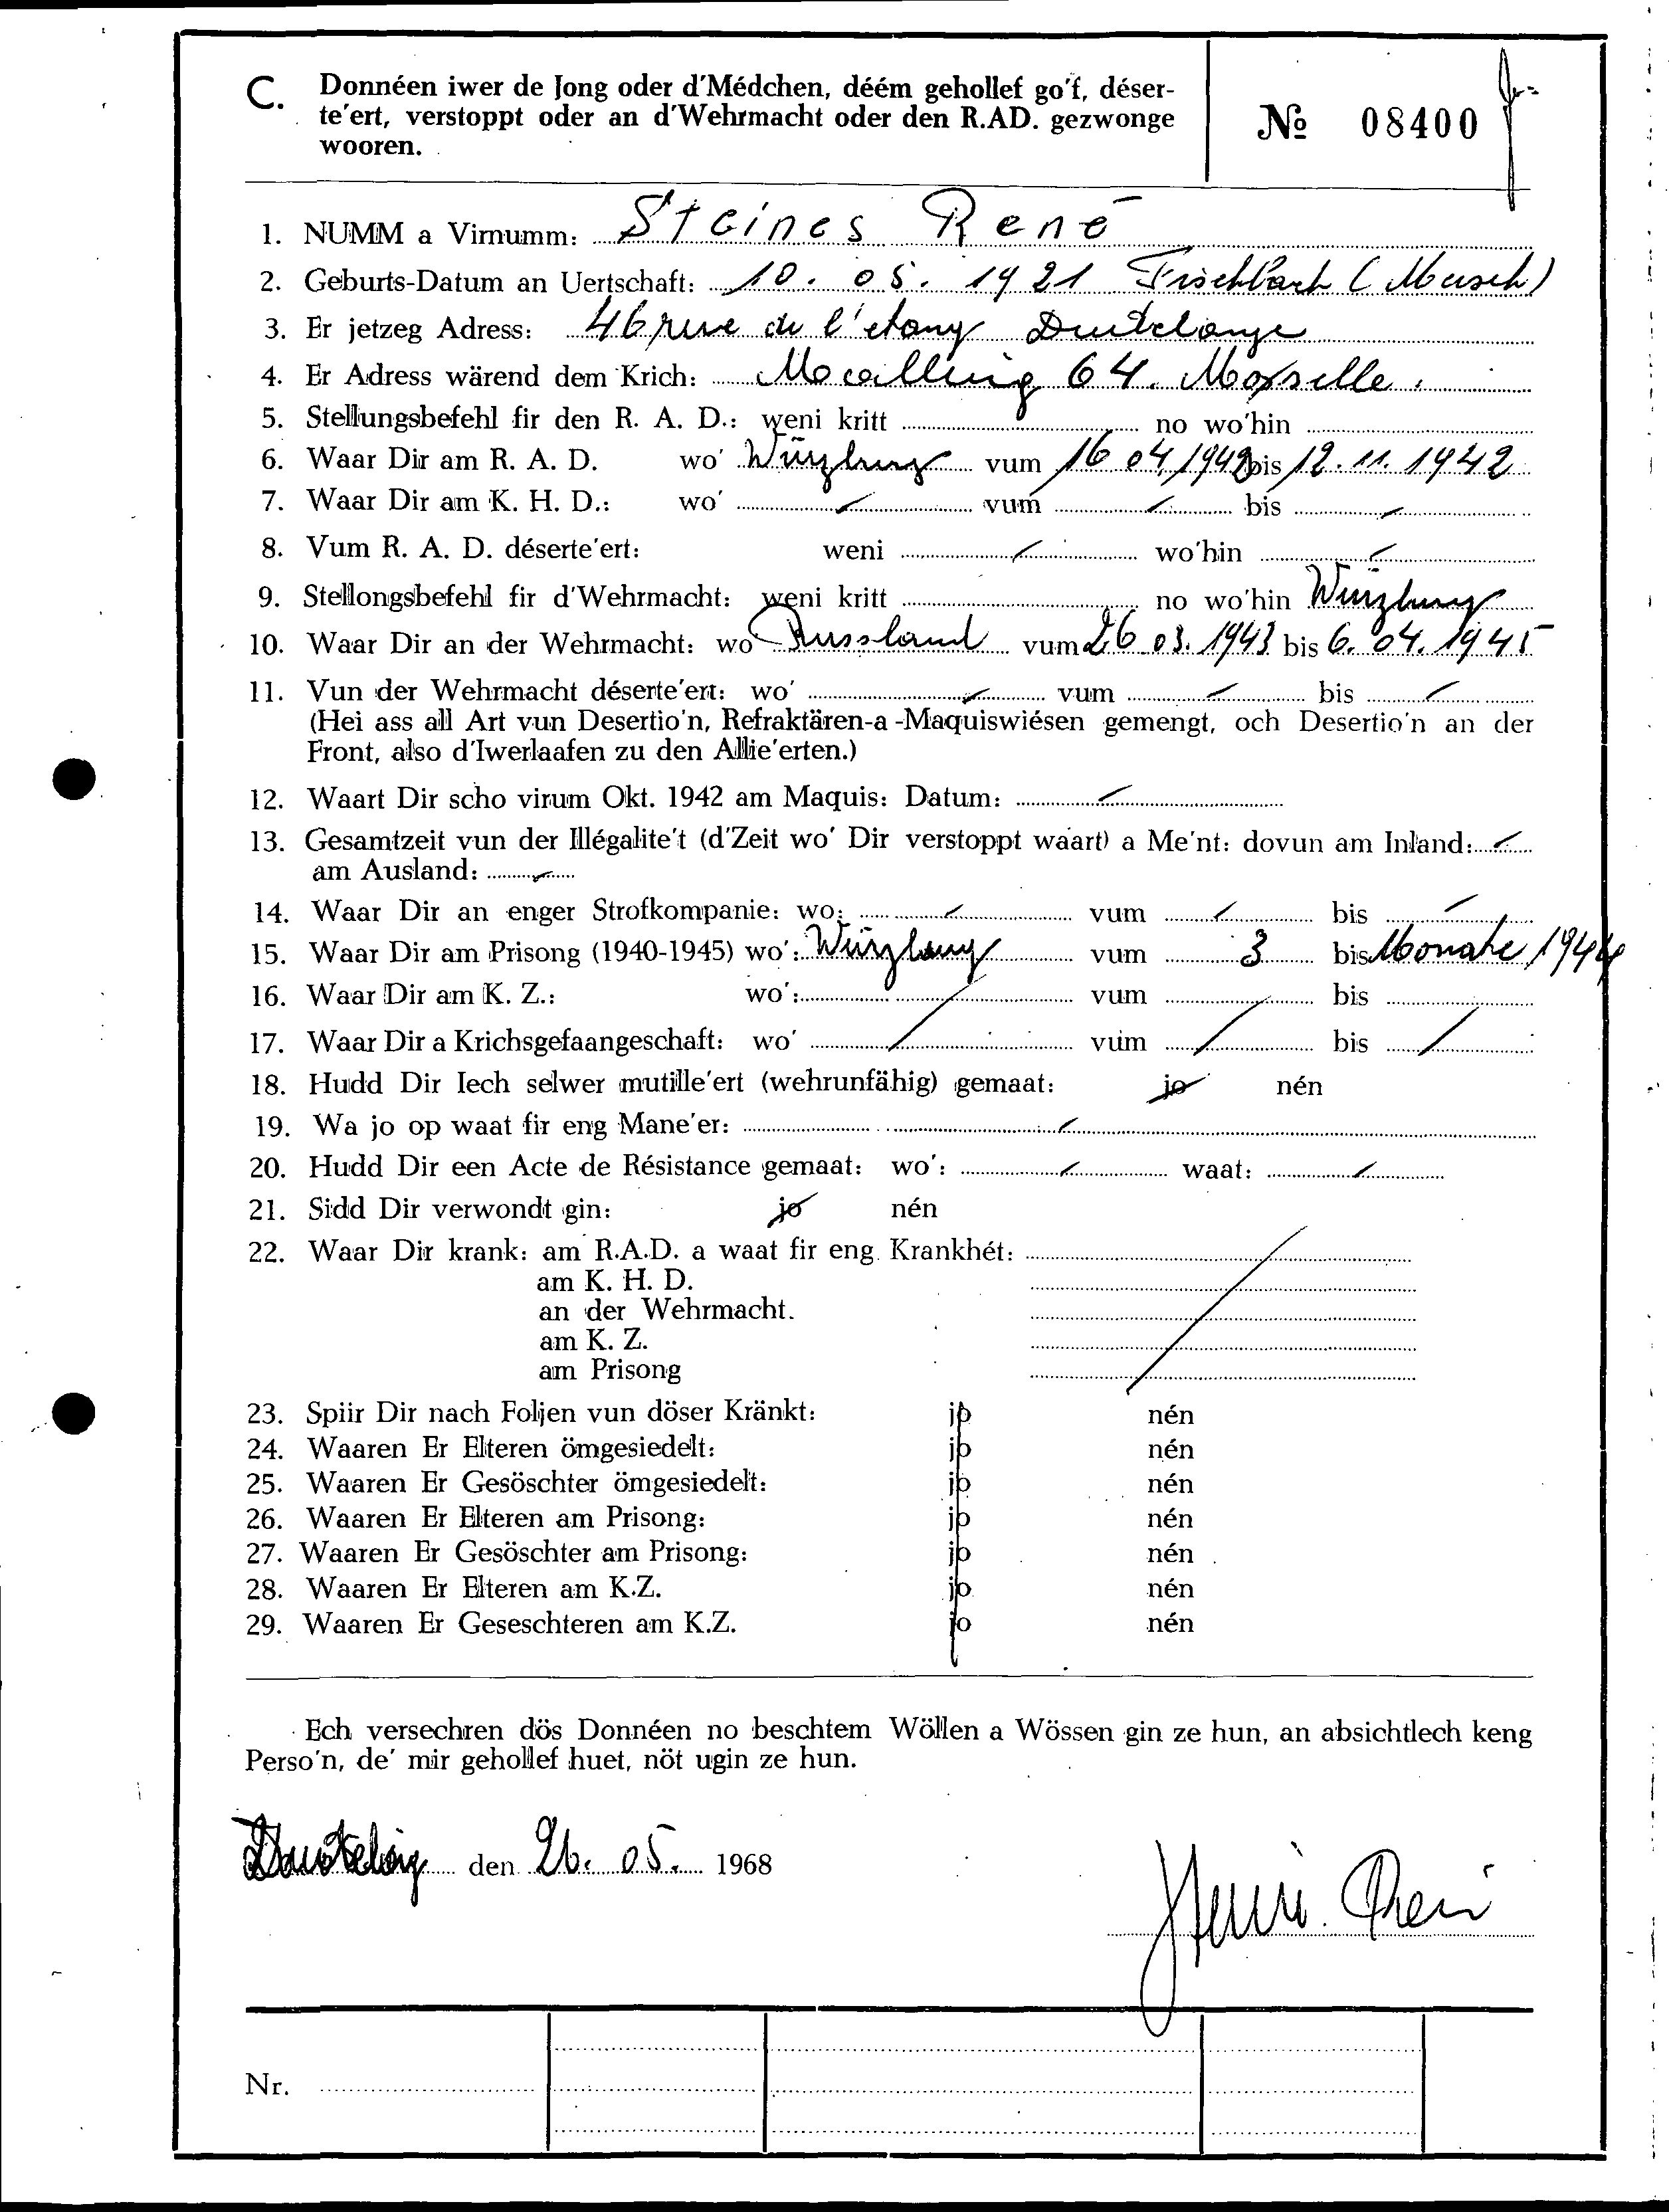 C. Donnéen iwer de Jong oder d'Médchen, déém gehollef go'f, déser-
te'ert, verstoppt oder an d'Wehrmacht oder den R.AD. gezwonge
wooren.
№ 08400
1. NUMM a Virnumm: Steines René
2. Geburts-Datum an Uertschaft: 10. 05. 1921 Fischbach (Mersch)
3. Er jetzeg Adress: 46 rue de l'etang
4. Er Adress wärend dem Krich: 64. Moselle
5. Stellungsbefehl fir den R. A. D.: weni kritt no wo'hin
6. Waar Dir am R. A. D. wo' Würzburg vum 16 04 1942 bis 12. 11. 1942
7. Waar Dir am K. H. D.: wo' vum bis
8. Vum R. A. D. déserte'ert: weni wo'hin
9. Stellongsbefehl fir d'Wehrmacht: weni kritt no wo'hin Würzburg
10. Waar Dir an der Wehrmacht: wo Russland vum 26 03. 1943 bis 6. 04. 1945
11. Vun der Wehrmacht déserte'ert: wo' vum bis
(Hei ass all Art vun Desertio'n, Refraktären-a-Maquiswiésen gemengt, och Desertio'n an der
Front, also d'Iwerlaafen zu den Allie'erten.)
12. Waart Dir scho virum Okt. 1942 am Maquis: Datum:
13. Gesamtzeit vun der Illégalite't (d'Zeit wo' Dir verstoppt waart) a Me'nt: dovun am Inland:
am Ausland:
14. Waar Dir an enger Strofkompanie: wo: vum bis
15. Waar Dir am Prisong (1940-1945) wo': Würzburg vum 3 bis Monate 1944
16. Waar Dir am K. Z.: wo': vum bis
17. Waar Dir a Krichsgefaangeschaft: wo' vum bis
18. Hudd Dir Iech selwer mutille'ert (wehrunfähig) gemaat: jo nén
19. Wa jo op waat fir eng Mane'er:
20. Hudd Dir een Acte de Résistance gemaat: wo': waat:
21. Sidd Dir verwondt gin: jo nén
22. Waar Dir krank: am R.A.D. a waat fir eng Krankhét:
am K. H. D.
an der Wehrmacht.
am K. Z.
am Prisong
23. Spiir Dir nach Foljen vun döser Kränkt: jo nén
24. Waaren Er Elteren ömgesiedelt: jo nén
25. Waaren Er Gesöschter ömgesiedelt: jo nén
26. Waaren Er Elteren am Prisong: jo nén
27. Waaren Er Gesöschter am Prisong: jo nén
28. Waaren Er Elteren am K.Z. jo nén
29. Waaren Er Geseschteren am K.Z. jo nén
Ech versechren dös Donnéen no beschtem Wöllen a Wössen gin ze hun, an absichtlech keng
Perso'n, de' mir gehollef huet, nöt ugin ze hun.
den 26. 05. 1968
Nr.